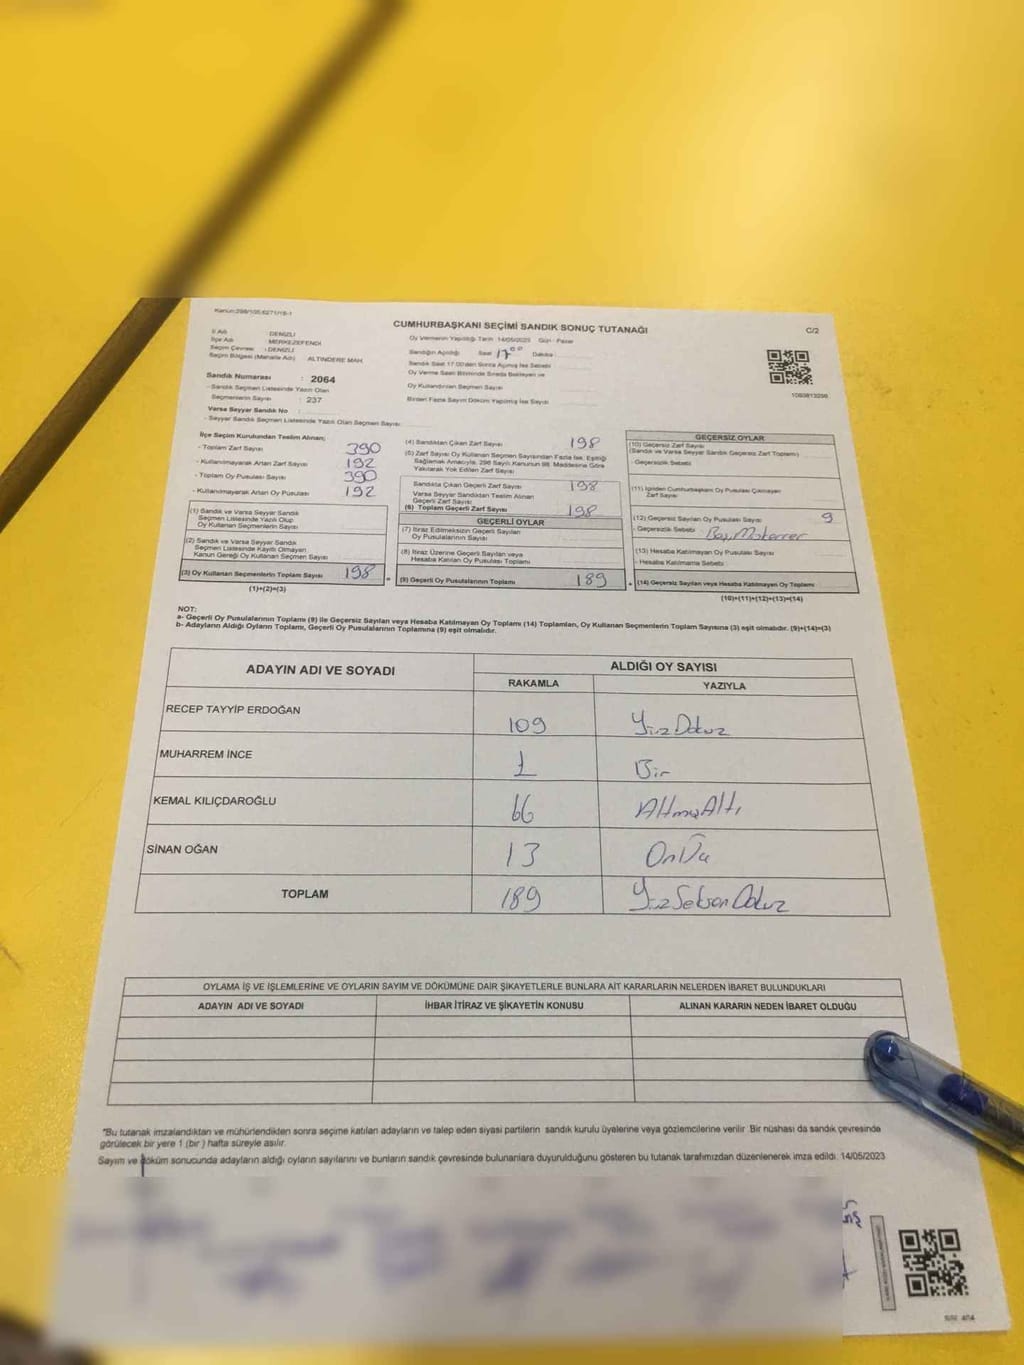 Kanun:298/105;6271/16-1
CUMHURBAŞKANI SEÇİMİ SANDIK SONUÇ TUTANAĞI
C/2
İl Adı : DENİZLİ
İlçe Adı : MERKEZEFENDİ
Seçim Çevresi : DENİZLİ
Seçim Bölgesi (Mahalle Adı) : ALTINDERE MAH.
Sandık Numarası : 2064
- Sandık Seçmen Listesinde Yazılı Olan
Seçmenlerin Sayısı : 237
Varsa Seyyar Sandık No :
- Seyyar Sandık Seçmen Listesinde Yazılı Olan Seçmen Sayısı:
Oy Vermenin Yapıldığı Tarih 14/05/2023 Gün : Pazar
Sandığın Açıldığı Saat 17 00 Dakika :
Sandık Saat 17.00'den Sonra Açılmış İse Sebebi
Oy Verme Saati Bitiminde Sırada Bekleyen ve
Oy Kullandırılan Seçmen Sayısı
Birden Fazla Sayım Döküm Yapılmış İse Sayısı
1083813256
İlçe Seçim Kurulundan Teslim Alınan;
- Toplam Zarf Sayısı 390
- Kullanılmayarak Artan Zarf Sayısı 192
- Toplam Oy Pusulası Sayısı 390
- Kullanılmayarak Artan Oy Pusulası 192
(1) Sandık ve Varsa Seyyar Sandık
Seçmen Listesinde Yazılı Olup
Oy Kullanan Seçmenlerin Sayısı
(2) Sandık ve Varsa Seyyar Sandık
Seçmen Listesinde Kayıtlı Olmayan
Kanun Gereği Oy Kullanan Seçmen Sayısı
(3) Oy Kullanan Seçmenlerin Toplam Sayısı 198
(1)+(2)=(3)
(4) Sandıktan Çıkan Zarf Sayısı 198
(5) Zarf Sayısı Oy Kullanan Seçmen Sayısından Fazla İse, Eşitliği
Sağlamak Amacıyla, 298 Sayılı Kanunun 98. Maddesine Göre
Yakılarak Yok Edilen Zarf Sayısı
Sandıkta Çıkan Geçerli Zarf Sayısı 198
Varsa Seyyar Sandıktan Teslim Alınan
Geçerli Zarf Sayısı
(6) Toplam Geçerli Zarf Sayısı 198
GEÇERLİ OYLAR
(7) İtiraz Edilmeksizin Geçerli Sayılan
Oy Pusulalarının Sayısı
(8) İtiraz Üzerine Geçerli Sayılan veya
Hesaba Katılan Oy Pusulası Toplamı
= (9) Geçerli Oy Pusulalarının Toplamı 189
GEÇERSİZ OYLAR
(10) Geçersiz Zarf Sayısı
(Sandık ve Varsa Seyyar Sandık Geçersiz Zarf Toplamı)
- Geçersizlik Sebebi
(11) İçinden Cumhurbaşkanı Oy Pusulası Çıkmayan
Zarf Sayısı
(12) Geçersiz Sayılan Oy Pusulası Sayısı 9
- Geçersizlik Sebebi Boş, Mükerrer
(13) Hesaba Katılmayan Oy Pusulası Sayısı
- Hesaba Katılmama Sebebi
+ (14) Geçersiz Sayılan veya Hesaba Katılmayan Oy Toplamı
(10)+(11)+(12)+(13)=(14)
NOT:
a- Geçerli Oy Pusulalarının Toplamı (9) ile Geçersiz Sayılan veya Hesaba Katılmayan Oy Toplamı (14) Toplamları, Oy Kullanan Seçmenlerin Toplam Sayısına (3) eşit olmalıdır. (9)+(14)=(3)
b- Adayların Aldığı Oyların Toplamı, Geçerli Oy Pusulalarının Toplamına (9) eşit olmalıdır.
ADAYIN ADI VE SOYADI
ALDIĞI OY SAYISI
RAKAMLA YAZIYLA
RECEP TAYYİP ERDOĞAN 109 Yüz Dokuz
MUHARREM İNCE 1 Bir
KEMAL KILIÇDAROĞLU 66 Altmış Altı
SİNAN OĞAN 13 On Üç
TOPLAM 189 Yüz Seksen Dokuz
OYLAMA İŞ VE İŞLEMLERİNE VE OYLARIN SAYIM VE DÖKÜMÜNE DAİR ŞİKAYETLERLE BUNLARA AİT KARARLARIN NELERDEN İBARET BULUNDUKLARI
ADAYIN ADI VE SOYADI İHBAR İTİRAZ VE ŞİKAYETİN KONUSU ALINAN KARARIN NEDEN İBARET OLDUĞU
"Bu tutanak imzalandıktan ve mühürlendikten sonra seçime katılan adayların ve talep eden siyasi partilerin sandık kurulu üyelerine veya gözlemcilerine verilir. Bir nüshası da sandık çevresinde
görülecek bir yere 1 (bir ) hafta süreyle asılır.
Sayım ve döküm sonucunda adayların aldığı oyların sayılarını ve bunların sandık çevresinde bulunanlara duyurulduğunu gösteren bu tutanak tarafımızdan düzenlenerek imza edildi. 14/05/2023